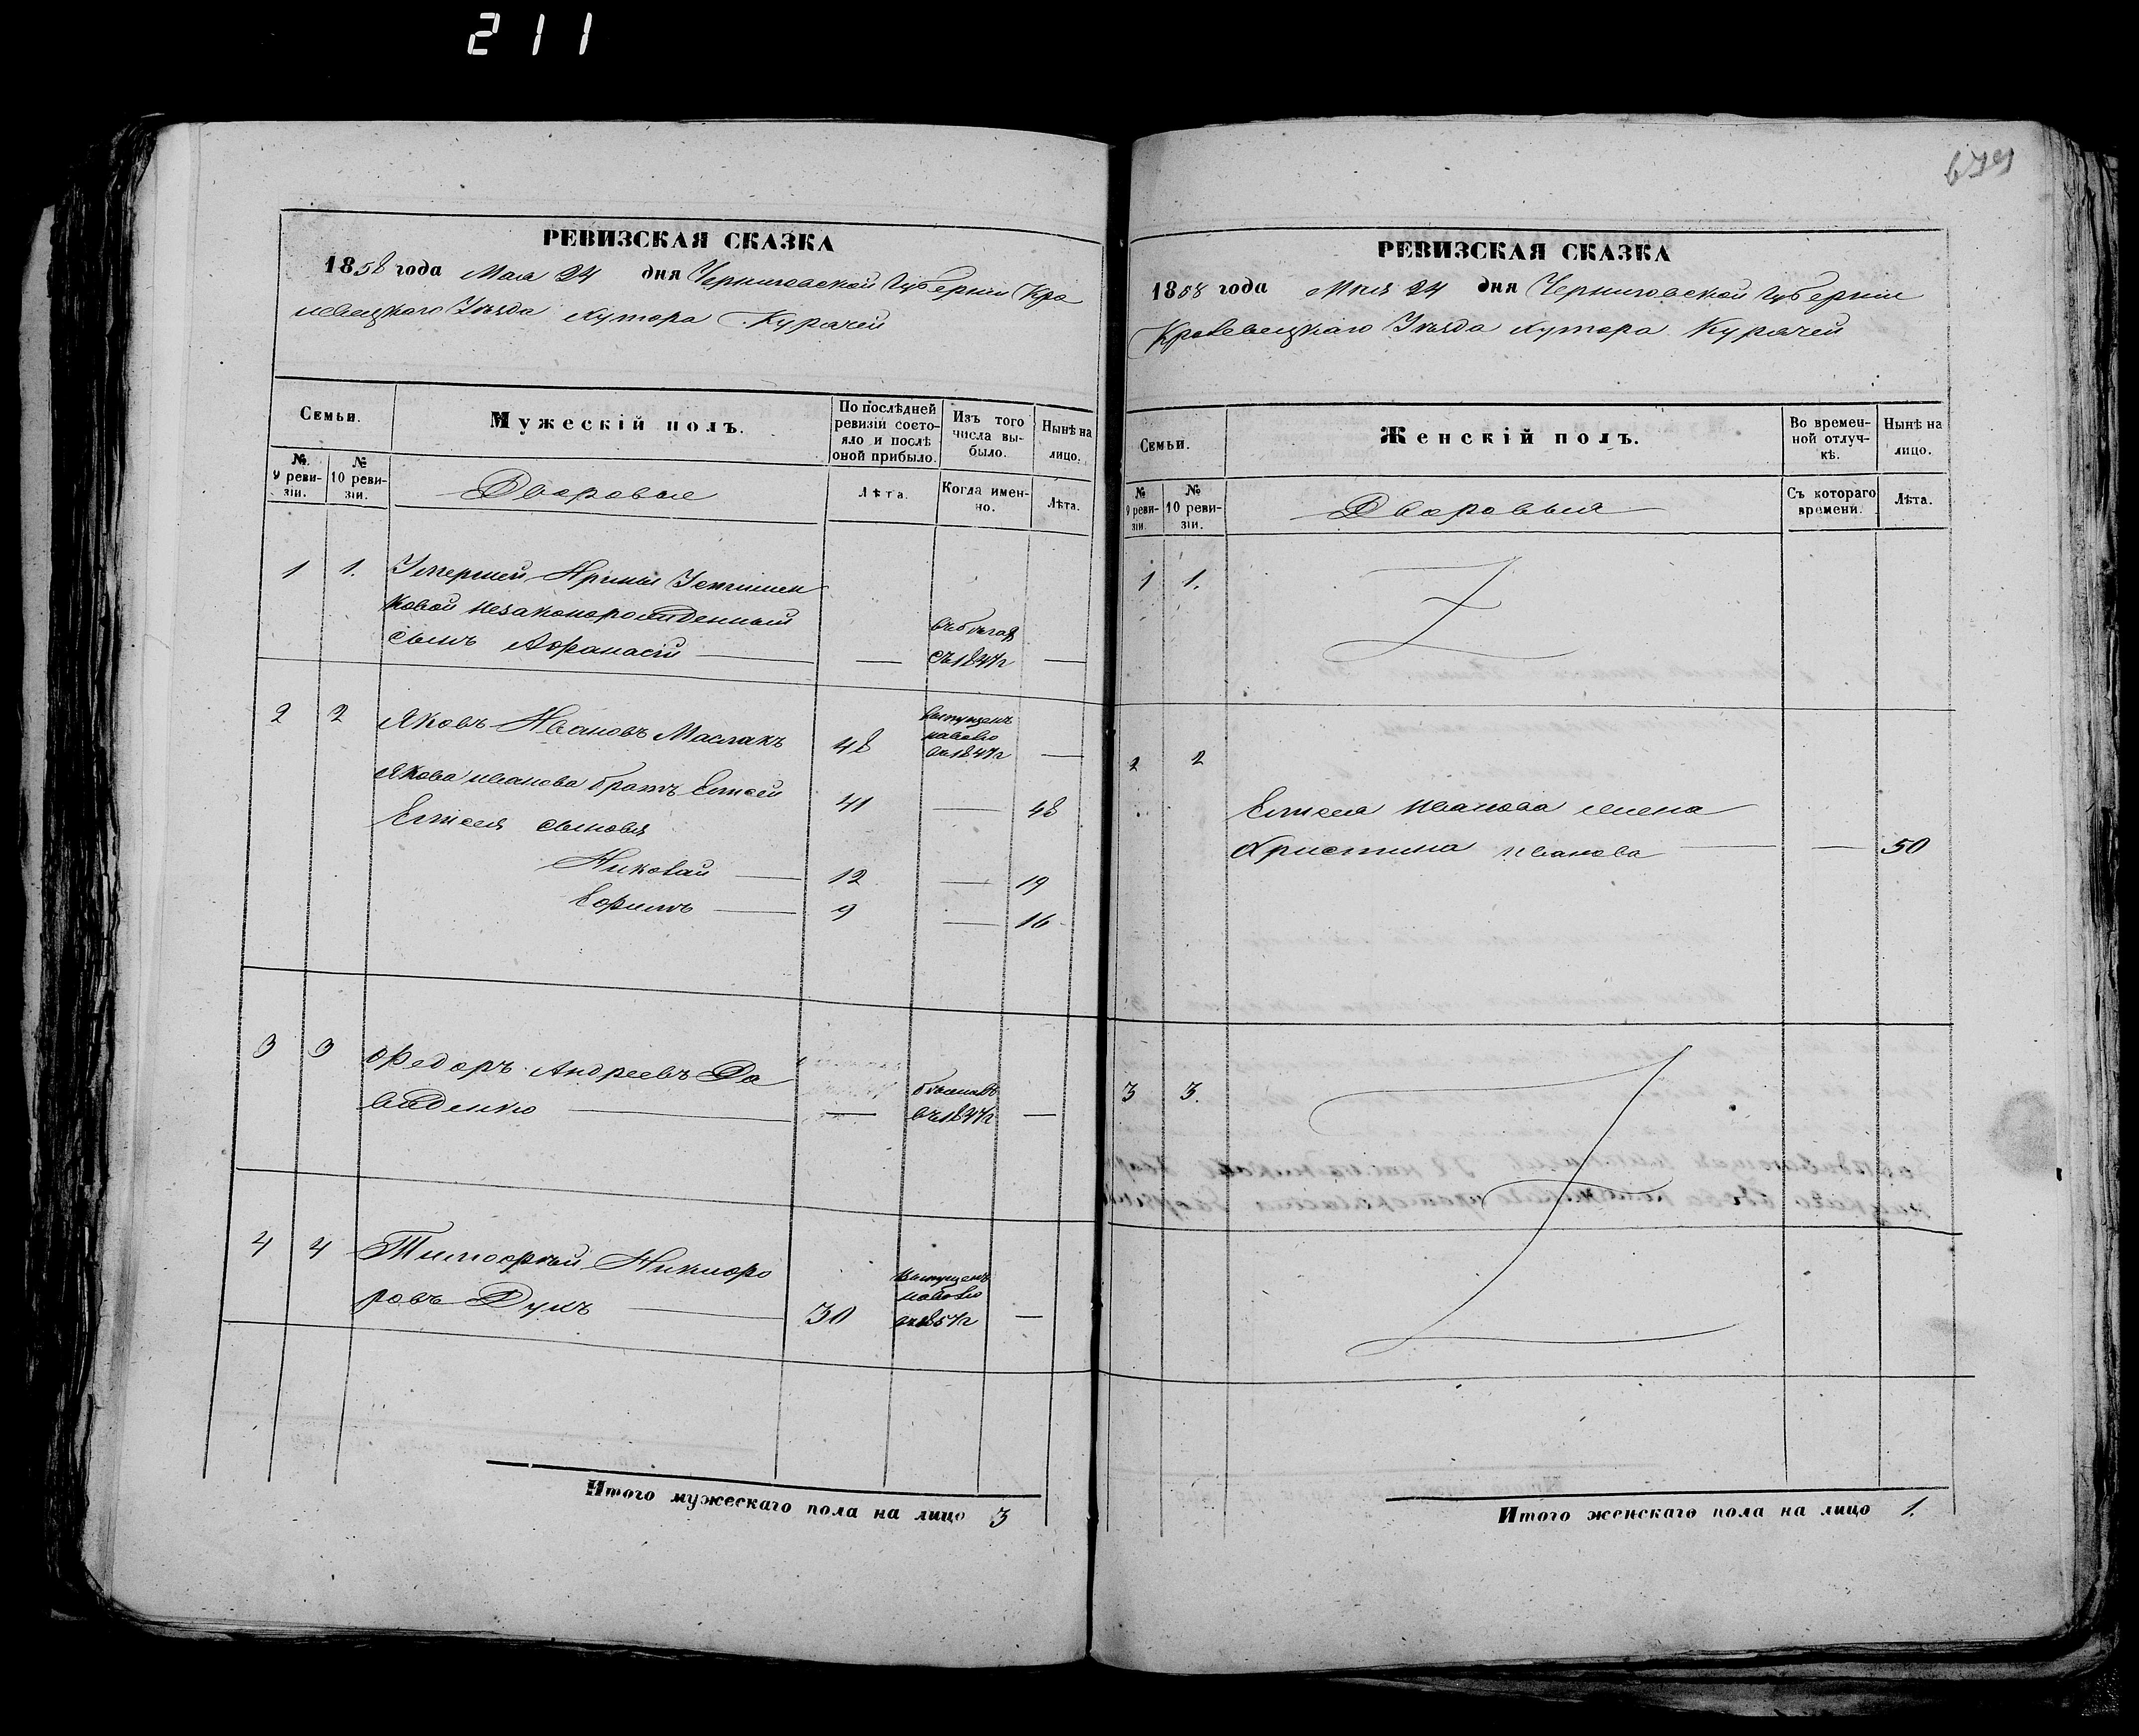 211
РЕВИЗСКАЯ СКАЗКА
1858 года Мая 24 дня Черниговской Губернiи Кро
левецкого Уѣзда хутора Курачей
Семьи.
Мужескiй полъ.
По послѣдней ревизiи состояло и послѣ оной прибыло.
Изъ того числа выбыло.
Нынѣ на лицо.
№ 9 ревизiи.
№ 10 ревизiи.
Дворовые
Лѣта.
Когда именно.
Лѣта.
1 1. Умершей Ирины
ковой незаконорожденный
въ бѣгах
сынъ Афанасiй — — съ 1847г —
2 2 Яковъ Ивановъ Маслакъ 48 выпущенъ на волю въ 1847г —
Якова Иванова братъ Елисей 41 — 48
Елисея сыновья
Николай — 12 — 19
Ефимъ — 9 — 16
3 3 Федоръ Андреевъ Да
виденко — — въ 1847г —
4 4 Тимофѣй Никифо
ровъ Думъ — 30 выпущенъ на волю —
Итого мужескаго пола на лицо 3
РЕВИЗСКАЯ СКАЗКА
1858 года Мая 24 дня Черниговской Губернiи
Кролевецкаго Уѣзда хутора Курачей
Семьи.
Женскiй полъ.
Во временной отлучкѣ.
Нынѣ на лицо.
№ 9 ревизiи.
№ 10 ревизiи.
Дворовыя
Съ котораго времени.
Лѣта.
1 1.
2 2
Елисея Иванова жена
Христина Иванова — — 50
3 3.
Итого женскаго пола на лицо 1.